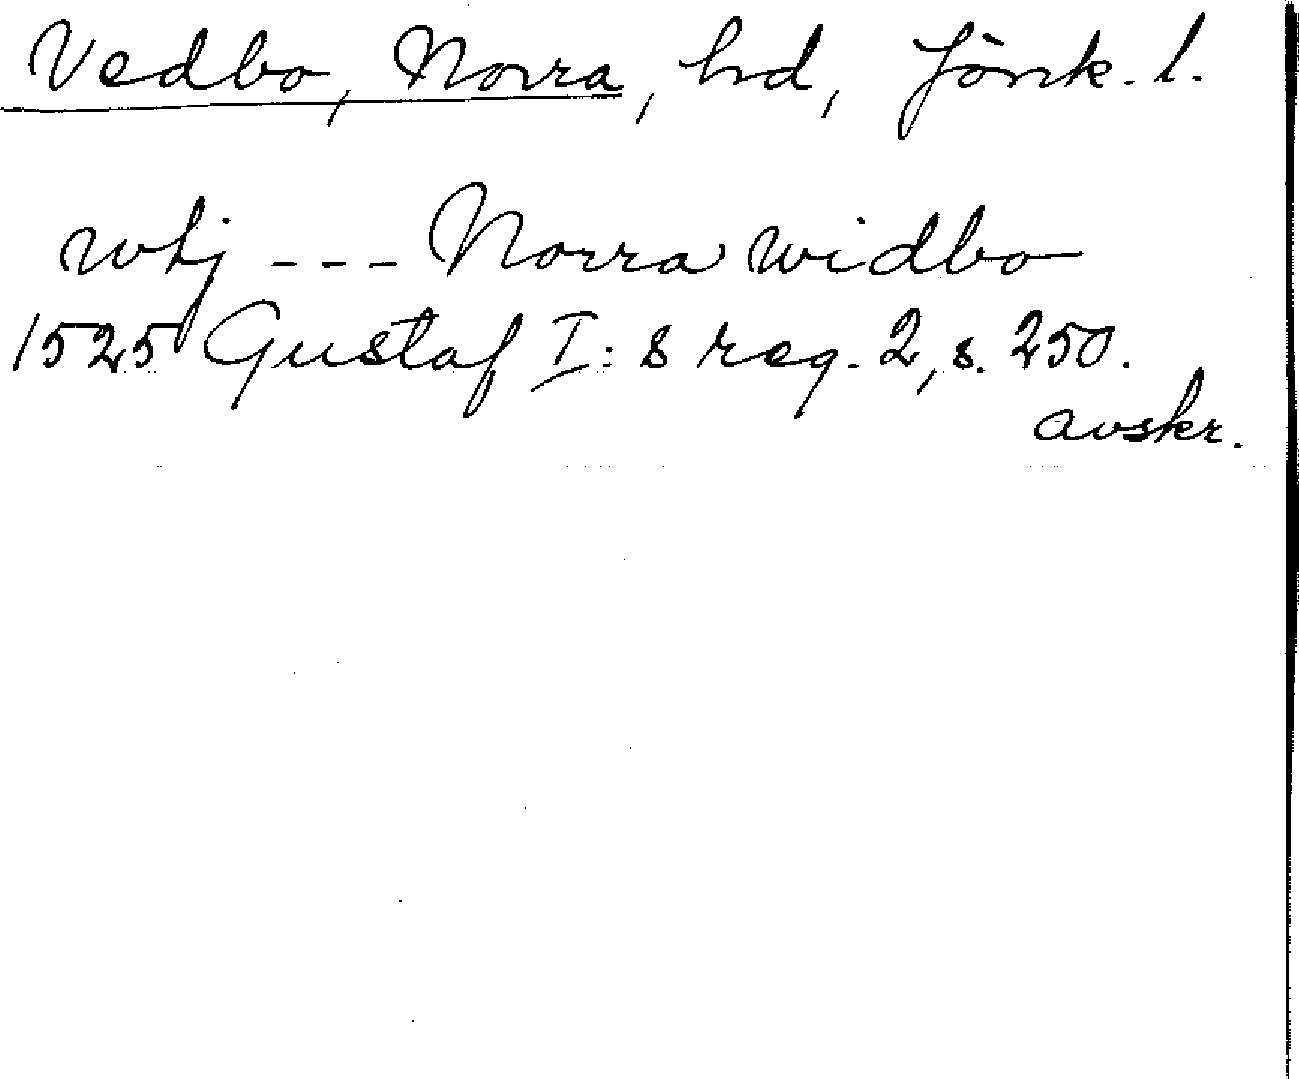 Vedbo, Norra, hd, Jönk. l.
utj --- Norra widbo
1525 Gustaf I:s reg. 2, s. 250.
avskr.